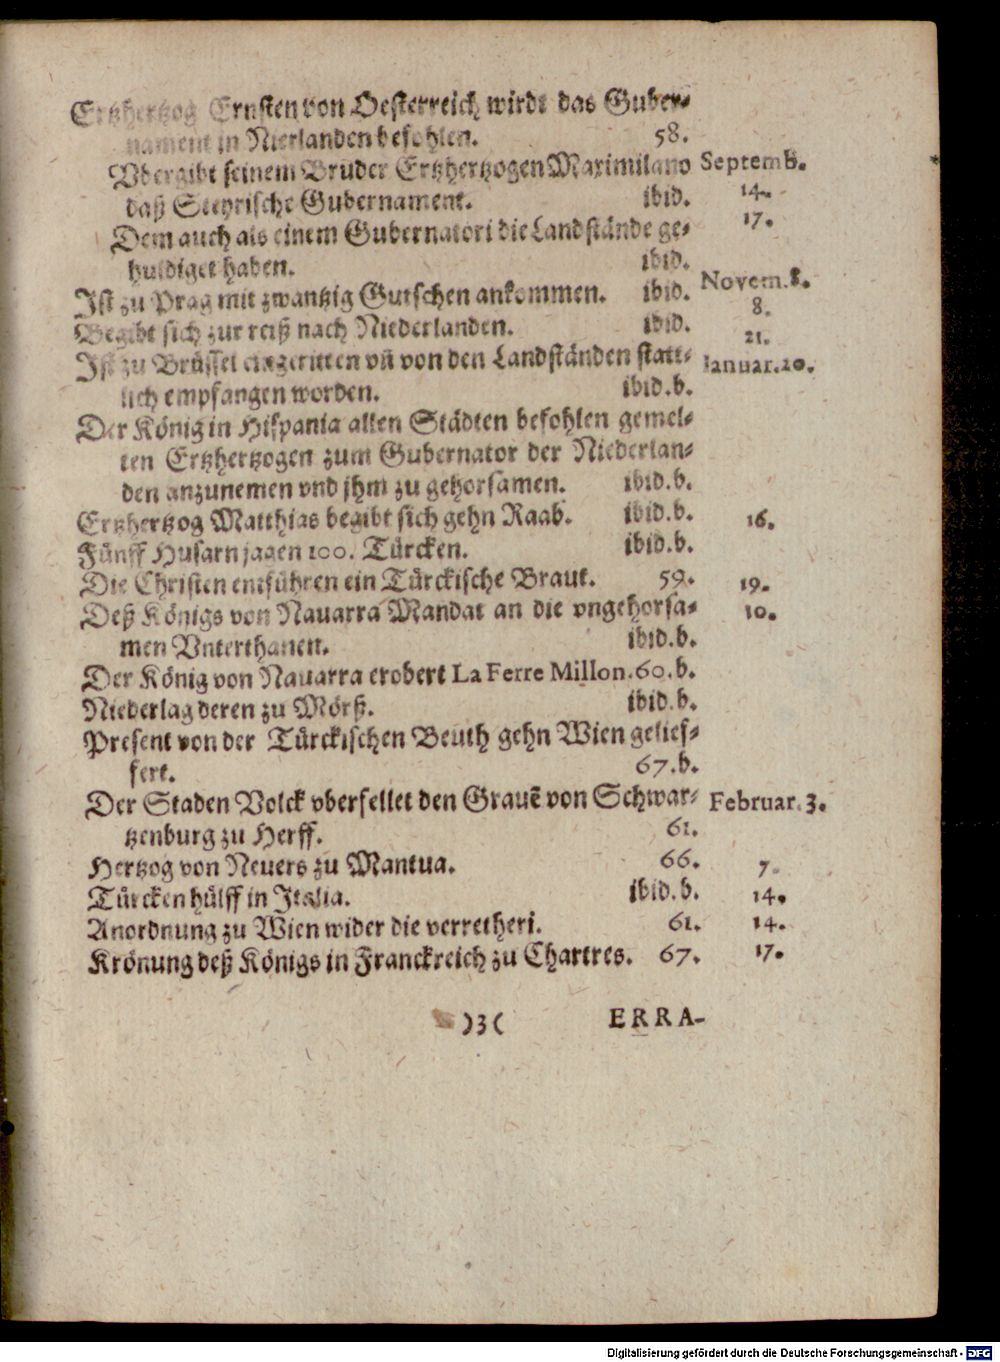 Ertzhertzog Ernsten von Oesterreich wirdt das Guber-
nament in Nierlanden befohlen. 58.
Vbergibt seinem Bruder Ertzhertzogen Maximilano Septemb.
daß Steyrische Gubernament. ibid. 14.
Dem auch als einem Gubernatori die Landstände ge- 17.
huldiget haben. ibid.
Ist zu Prag mit zwantzig Gutschen ankommen. ibid. Novem.8.
8.
Begibt sich zur reiß nach Niederlanden. ibid. 21.
Ist zu Brüssel eingeritten vñ von den Landständen statt- Ianuar.20.
lich empfangen worden. ibid.b.
Der König in Hispania allen Städten befohlen gemel-
ten Ertzhertzogen zum Gubernator der Niederlan-
den anzunemen vnd jhm zu gehorsamen. ibid.b.
Ertzhertzog Matthias begibt sich gehn Raab. ibid.b. 16.
Fünff Husarn jagen 100. Türcken. ibid.b.
Die Christen entführen ein Türckische Braut. 59. 19.
Deß Königs von Nauarra Mandat an die vngehorsa- 10.
men Vnterthanen. ibid.b.
Der König von Nauarra erobert La Ferre Millon. 60.b.
Niederlag deren zu Mörß. ibid.b.
Present von der Türckischen Beuth gehn Wien gelief-
fert. 67.b.
Der Staden Volck vberfellet den Grauē von Schwar- Februar.3.
tzenburg zu Herff. 61.
Hertzog von Neuers zu Mantua. 66. 7.
Türcken hülff in Italia. ibid.b. 14.
Anordnung zu Wien wider die verretheri. 61. 14.
Krönung deß Königs in Franckreich zu Chartres. 67. 17.
)3( ERRA-
Digitalisierung gefördert durch die Deutsche Forschungsgemeinschaft - DFG